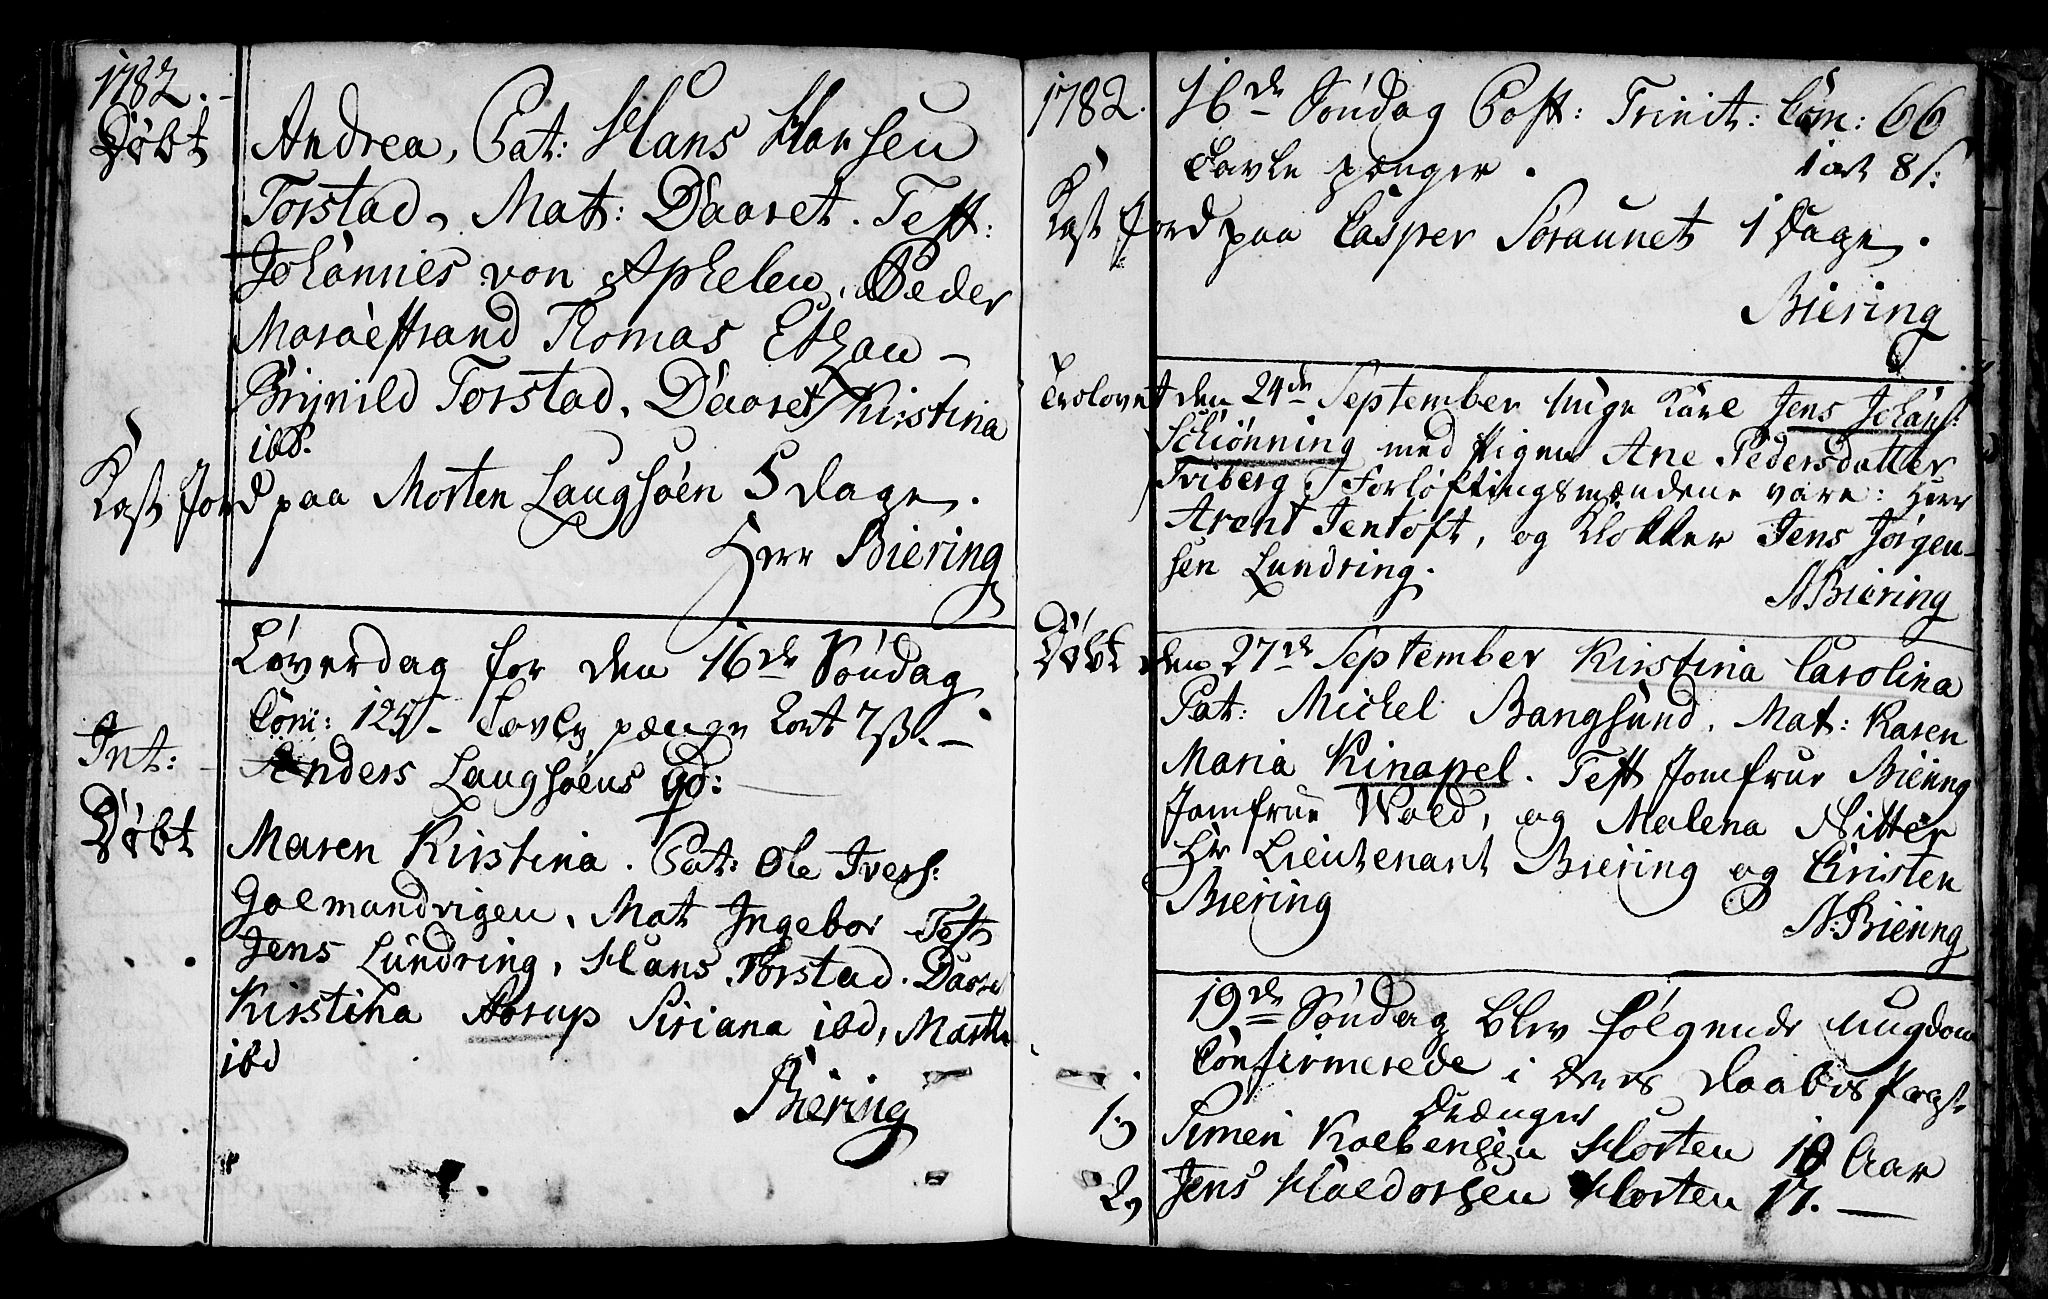 1782.
Döbt Andrea, Pat: Hans Hansen
Torstad, Mat: Daaret. Test:
Johannes von Aphelen, Peder
Maraëstrand Thomas Ethau
Brÿnild Torstad, Daaret Kirstina
ibd.
Kast Jord paa Morten Laugsøen 5 dage.
Herr Biering
Löverdag for den 16de Söndag
Com: 125 - Tavle penge 1ort 7ß. -
Int: Anders Laugsöens qd:
Döbt Maren Kirstina. Pat: Ole Ivers:
Galmandvigen, Mat Ingebor Test
Jens Lundring, Hans Torstad. Daare
Kirstina Aarup Siriana ibd, Martha
ibd
Biering
1782. 16de Söndag Post: Trinit: Com: 66
Tavle penger. 1 ort 8 s:
Kast Jord paa Casper Soraunet 1 Dage.
Biering
Trolovet den 24de September unge Karl Jens Johans:
Schiönning med Pigen Ane Pedersdatter
Tviberg. Forlöftingsmændene vare: Herr
Arent Jentoft, og Klokker Jens Jörgen-
sen Lundring.
N Biering
Döbt den 27de September Kirstina Carolina
Pat: Michel Bangsund, Mat: Karen
Maria Kinapel. Test Jomfrue Biering
Jomfrue Wold, og Malena Nitter
Hr Lieutenant Biering og Christen
Biering
N: Biering
19de Söndag blev fölgende ungdom
Confirmerede i deres Daabes pagt
Drænger
1) Simen Kolbensen Horten 18 Aar
2) Jens Haldorsen Horten 17. -